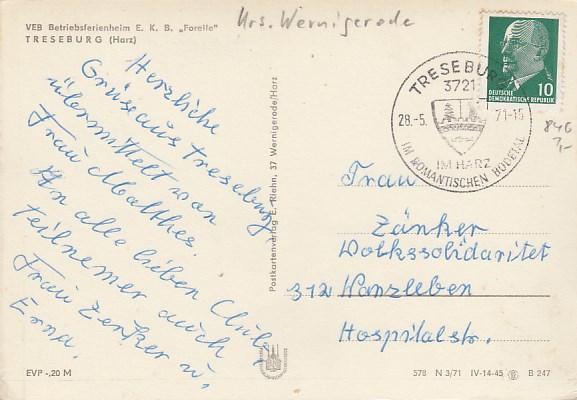 VEB Betriebsferienheim E. K. B. „Forelle"
TRESEBURG (Harz)
Krs. Wernigerode
Herzliche
Grüsse aus Treseburg,
übermittelt von
Frau Malther.
An alle lieben
teilnemer auch
Frau Zenker u,
Erna.
EVP -,20 M
Postkartenverlag E. Riehn, 37 Wernigerode/Harz
TRESEBURG
3721
28.-5. 71-15
IM HARZ
IM ROMANTISCHEN BODETAL
10
DEUTSCHE
DEMOKRATISCHE REPUBLIK
846
7,-
Frau
Zänker
Volkssolidaritet
312 Wanzleben
Hospitalstr.
578 N 3/71 IV-14-45 B 247